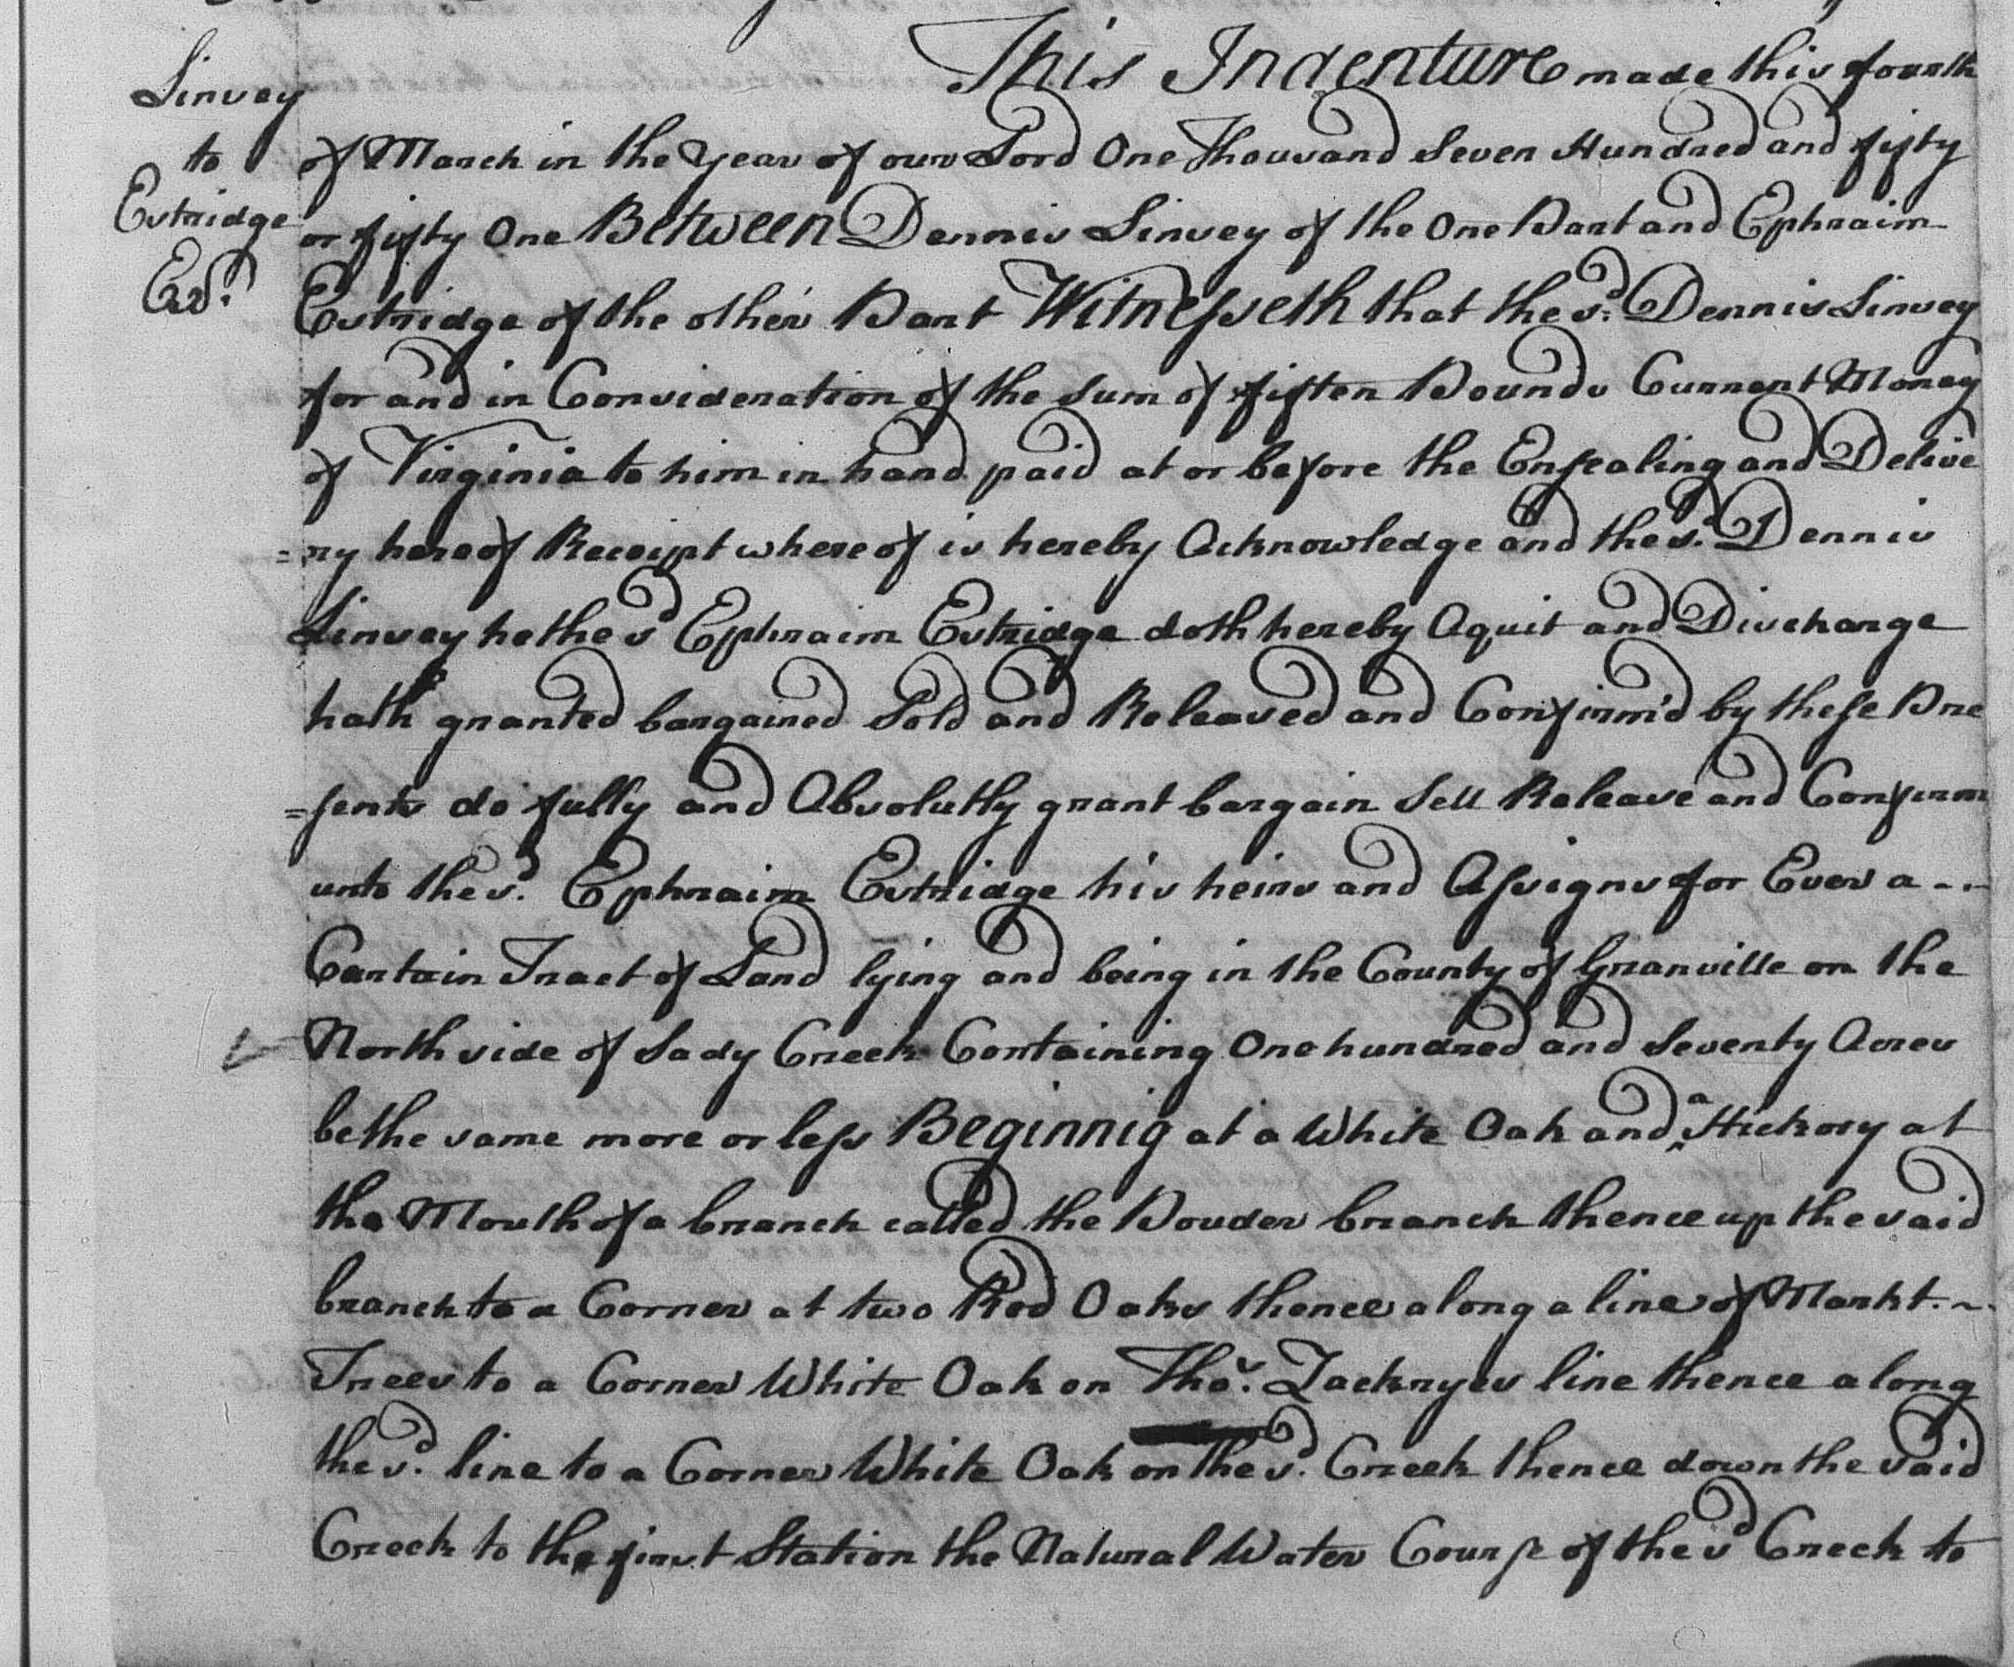 Linvey
to
Estridge
Exd.
This Indenture made this fourth
of March in the Year of our Lord One Thousand Seven Hundred and fifty
or fifty One Between Dennis Linvey of the One Part and Ephraim
Estridge of the other Part Witnesseth that the sd. Dennis Linvey
for and in Consideration of the sum of fiften Pounds Currant Money
of Virginia to him in hand paid at or before the Ensealing and Delive
=ry hereof Receipt whereof is hereby Acknowledge and the sd. Dennis
Linvey he the sd Ephraim Estridge doth hereby Aquit and Discharge
hath granted bargained Sold and Released and Confirm'd by these Pre
=sents do fully and Absolutly grant bargain Sell Release and Confirm
unto the sd. Ephraim Estridge his heirs and Assigns for Ever a
Certain Tract of Land lying and being in the County of Granville on the
North side of Sady Creek Containing One hundred and Seventy Acres
be the same more or less Beginnig at a White Oak and a Hickory at
the Mouth of a branch called the Pouder branch thence up the said
branch to a Corner at two Red Oaks thence along a line of Markt
Trees to a Corner White Oak on Thos. Zacknyes line thence along
the sd. line to a Corner White Oak on the sd. Creek thence down the said
Creek to the first Station the Natural Water Course of the sd Creek to